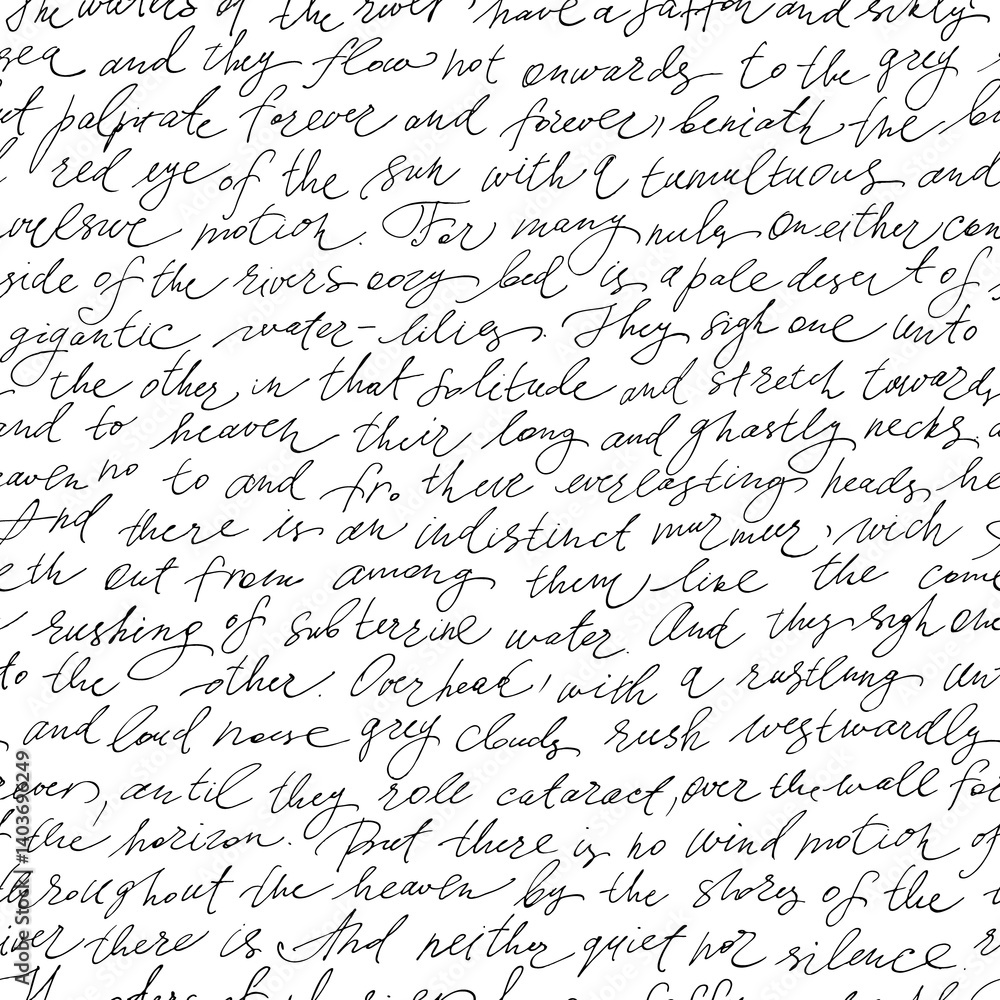 The waters of the river have a saffron and sikly
sea and they flow not onwards to the grey
ut palpitate forever and forever, beniath the bu
red eye of the sun with a tumultuous and
vulsive motion. For many miles on either con
side of the rivers oozy bed is a pale desert of
gigantic water-lilies. They sigh one unto
the other in that solitude and stretch towards
and to heaven their long and ghastly necks. a
eaven no to and fro there everlasting heads he
And there is an indistinct murmur, wich
eth out from among them like the come
rushing of subterrine water. And they sigh one
to the other. Overhead, with a rustlung un
and loud noise grey clouds rush westwardly
river, until they roll cataract, over the wall for
f the horizon. But there is no wind motion of
roughout the heaven by the shores of the
iver there is And neither quiet nor silence. r
Adobe Stock | #1403696249